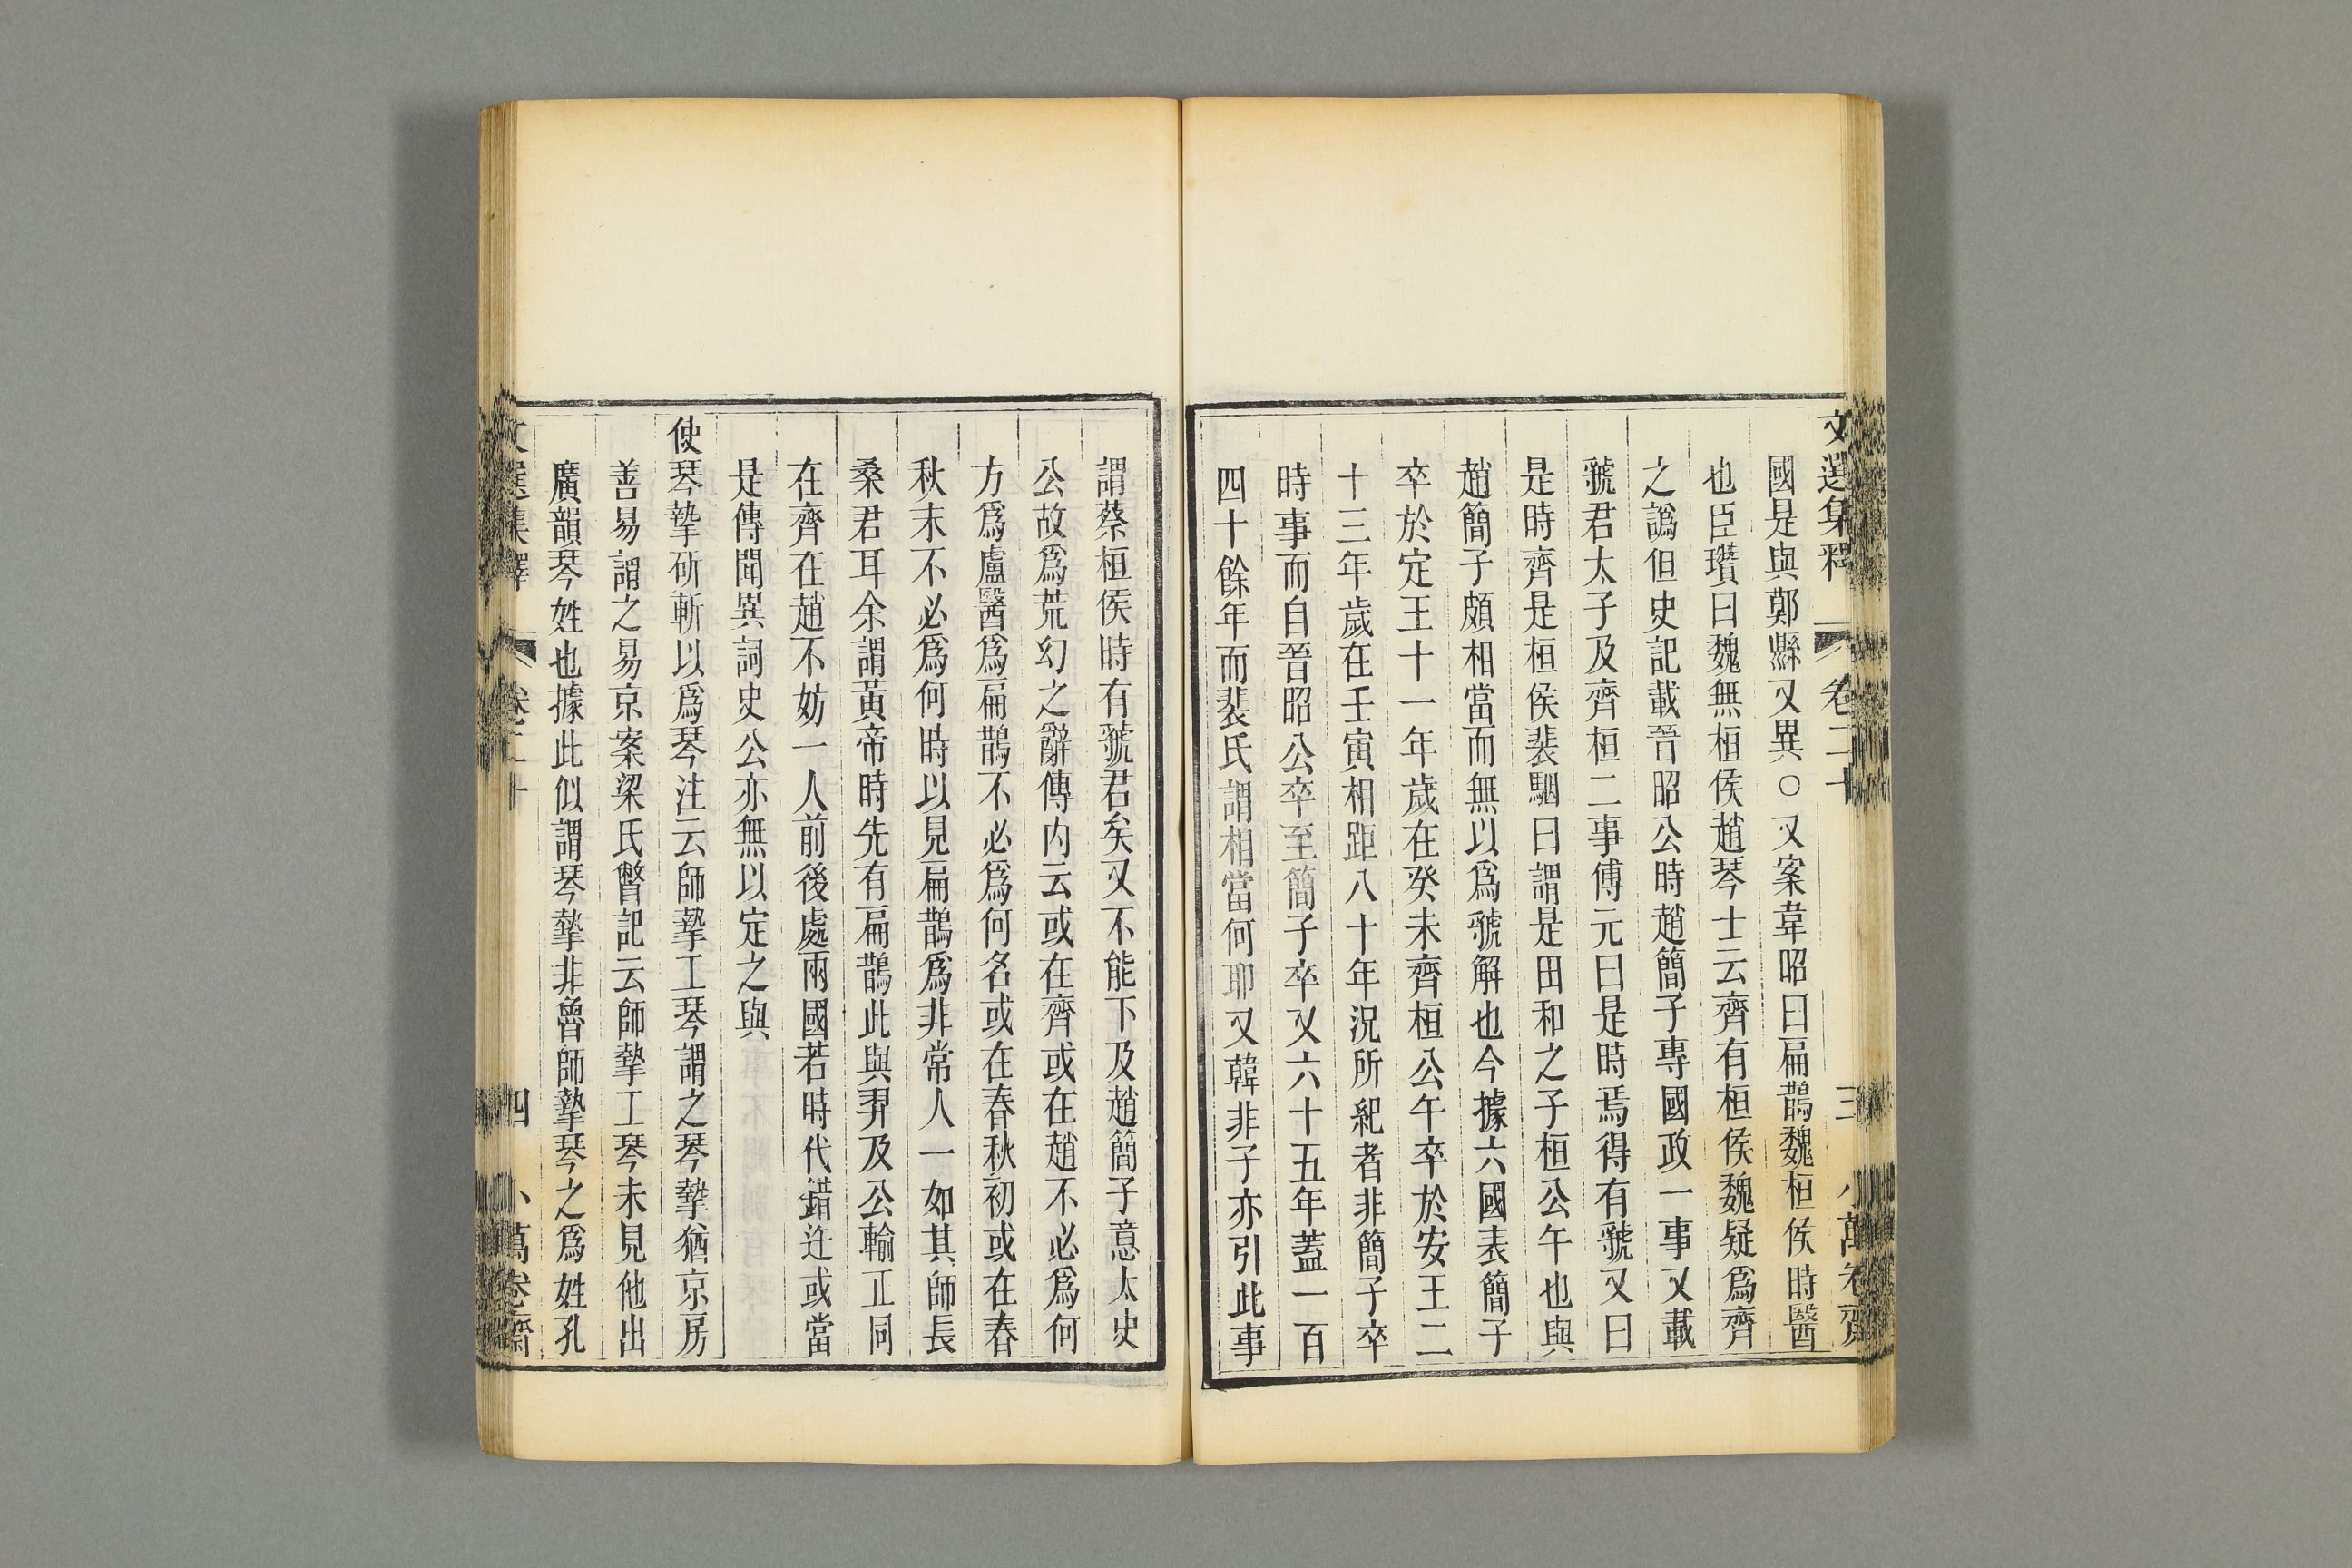 文選集釋 卷二十 三 小萬卷齋
國是與鄭縣又異○又案韋昭曰扁鵲魏桓侯時醫
也臣瓚曰魏無桓侯趙琴士云齊有桓侯魏疑爲齊
之譌但史記載晉昭公時趙簡子專國政一事又載
虢君太子及齊桓二事傅元曰是時焉得有虢又曰
是時齊是桓侯裴駰曰謂是田和之子桓公午也與
趙簡子頗相當而無以爲虢解也今據六國表簡子
卒於定王十一年歲在癸未齊桓公午卒於安王二
十三年歲在壬寅相距八十年況所紀者非簡子卒
時事而自晉昭公卒至簡子卒又六十五年蓋一百
四十餘年而裴氏謂相當何耶又韓非子亦引此事
謂蔡桓侯時有虢君矣又不能下及趙簡子意太史
公故爲荒幻之辭傳內云或在齊或在趙不必爲何
方爲盧醫爲扁鵲不必爲何名或在春秋初或在春
秋末不必爲何時以見扁鵲爲非常人一如其師長
桑君耳余謂黃帝時先有扁鵲此與羿及公輸正同
在齊在趙不妨一人前後處兩國若時代錯迕或當
是傳聞異詞史公亦無以定之與
使琴摯斫斬以爲琴注云師摯工琴謂之琴摯猶京房
善易謂之易京案梁氏瞥記云師摯工琴未見他出
廣韻琴姓也據此似謂琴摯非魯師摯琴之爲姓孔
文選集釋 卷二十 四 小萬卷齋